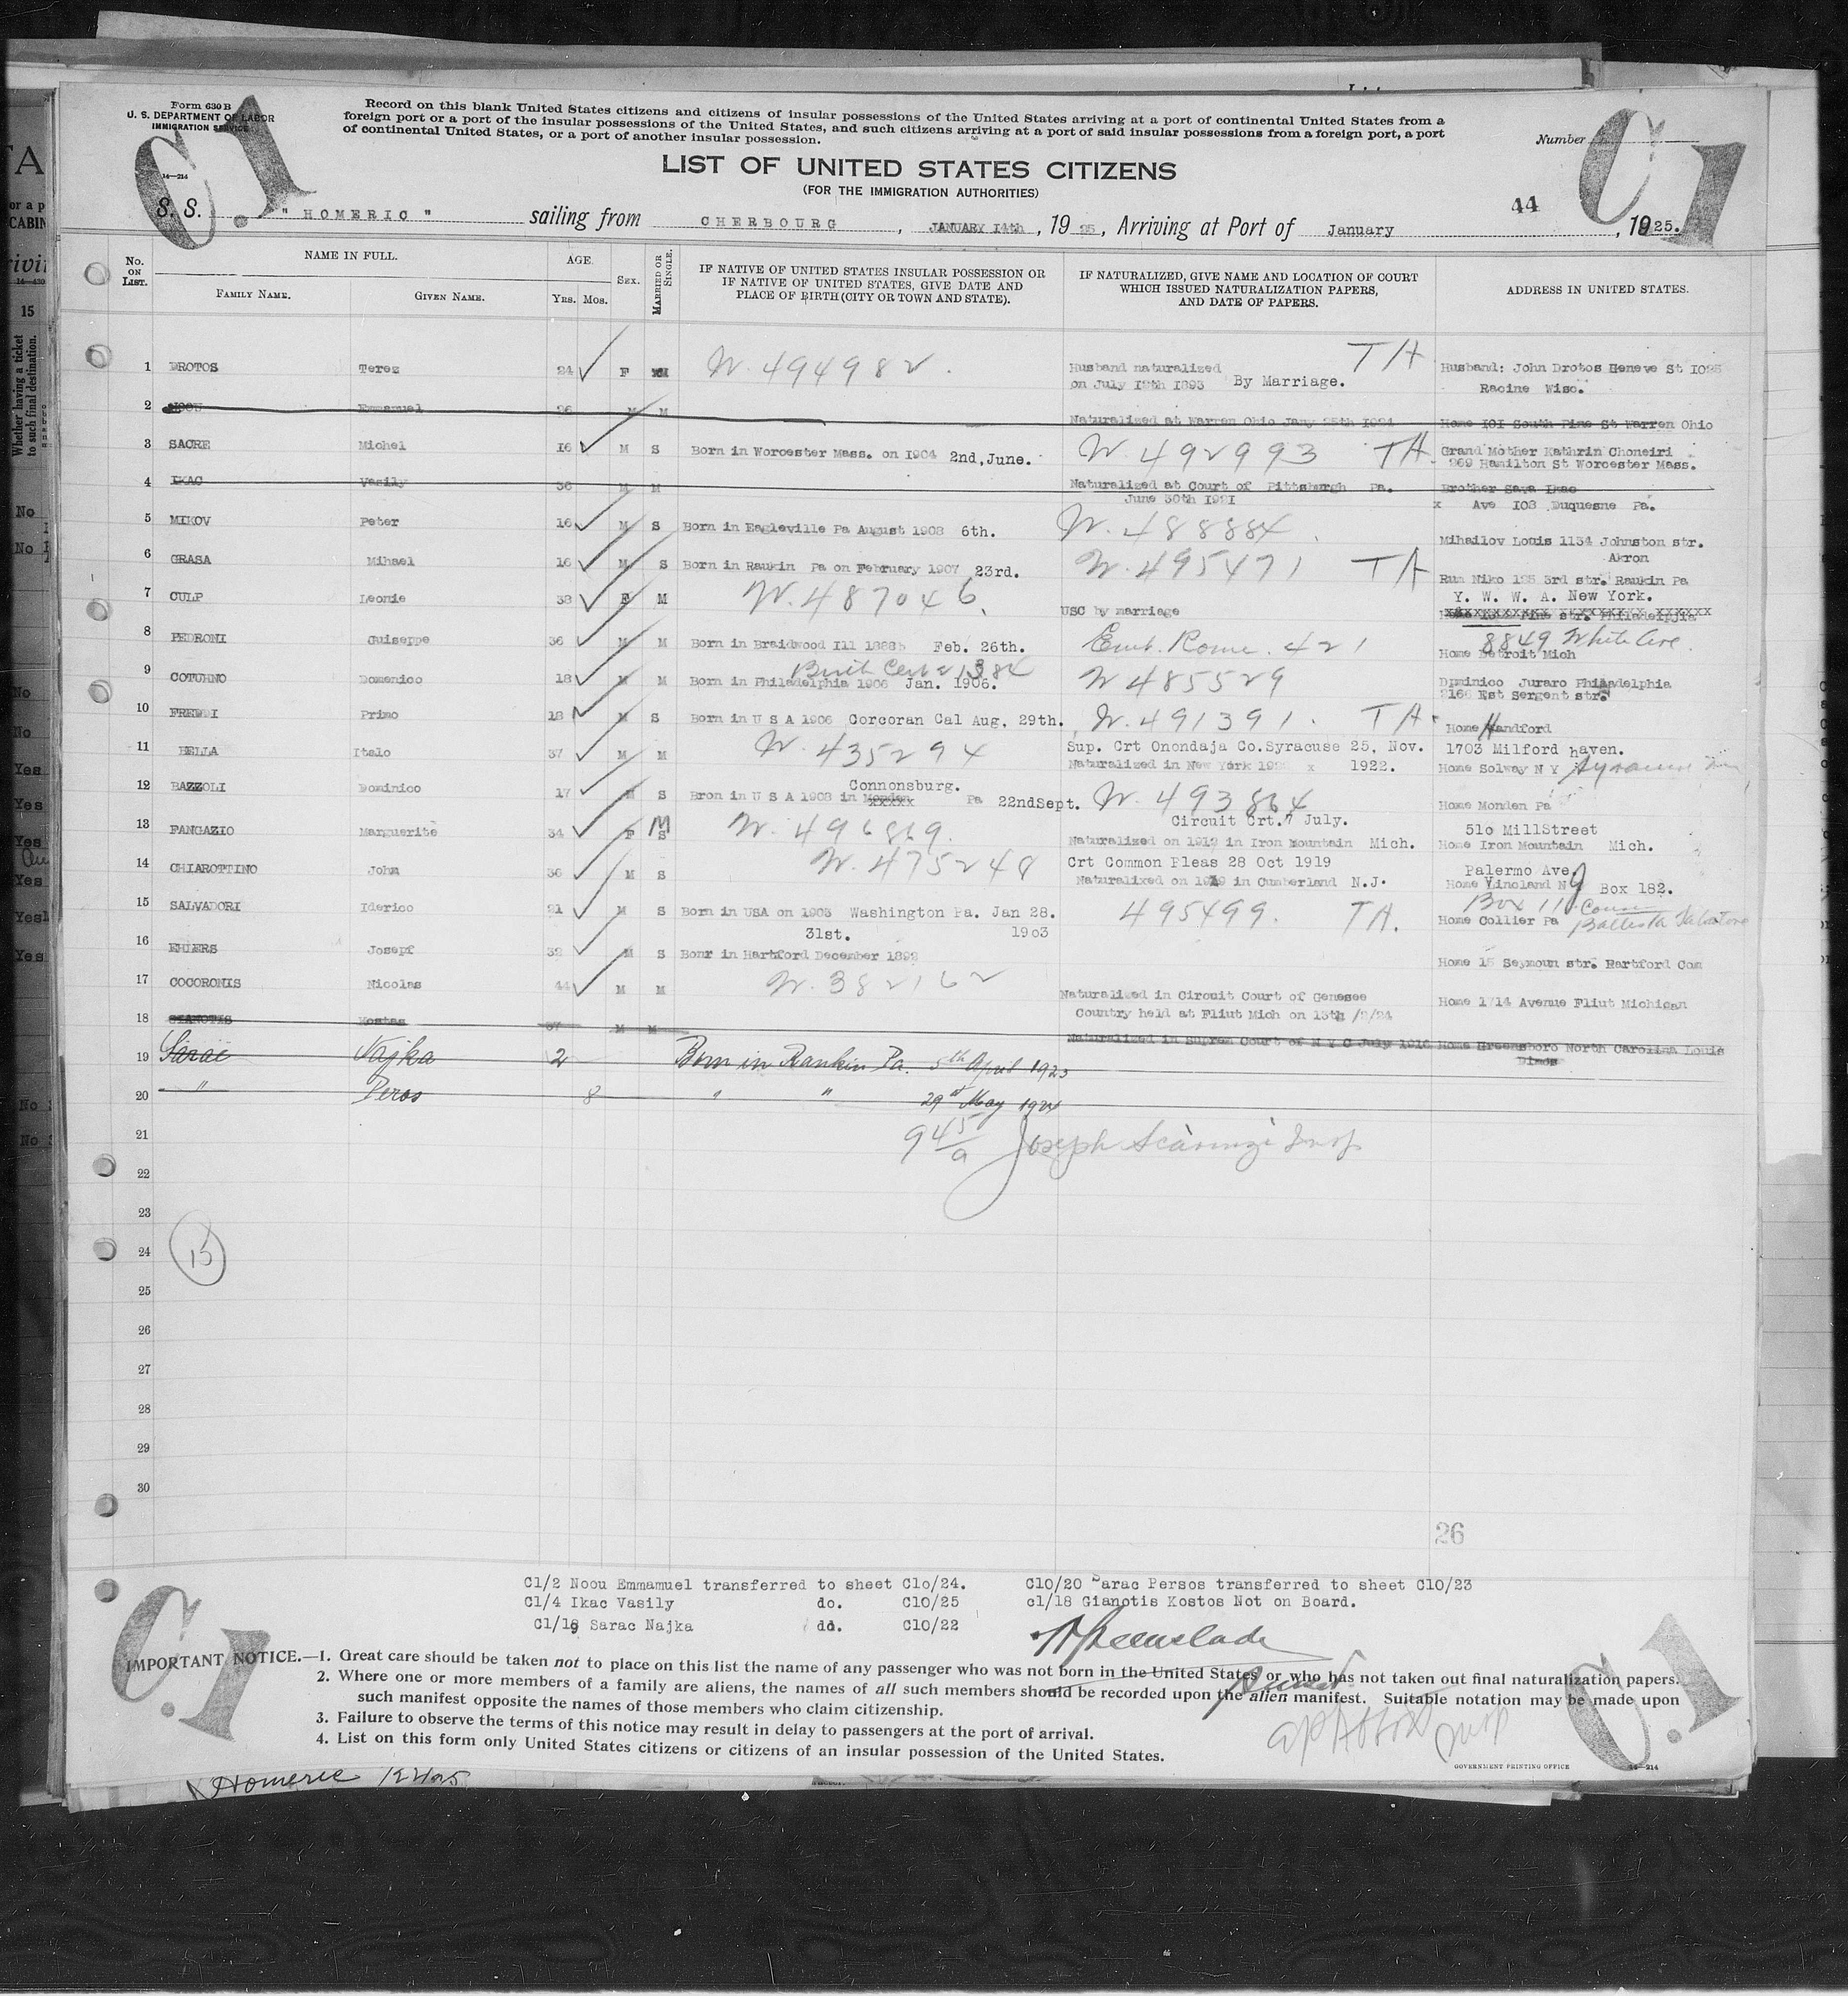 Form 630 B
U. S. DEPARTMENT OF LABOR
IMMIGRATION SERVICE
14—214
C.1
C1
Record on this blank United States citizens and citizens of insular possessions of the United States arriving at a port of continental United States from a
foreign port or a port of the insular possessions of the United States, and such citizens arriving at a port of said insular possessions from a foreign port, a port
of continental United States, or a port of another insular possession.
Number
LIST OF UNITED STATES CITIZENS
(FOR THE IMMIGRATION AUTHORITIES)
44
S. S. "HOMERIC" sailing from CHERBOURG, JANUARY 14th, 1925, Arriving at Port of January, 1925.
No. ON LIST. NAME IN FULL. FAMILY NAME. GIVEN NAME. AGE. Yrs. Mos. SEX. MARRIED OR SINGLE. IF NATIVE OF UNITED STATES INSULAR POSSESSION OR IF NATIVE OF UNITED STATES, GIVE DATE AND PLACE OF BIRTH (CITY OR TOWN AND STATE). IF NATURALIZED, GIVE NAME AND LOCATION OF COURT WHICH ISSUED NATURALIZATION PAPERS, AND DATE OF PAPERS. ADDRESS IN UNITED STATES.
1 DROTOS Terez 24 F M W. 494982. Husband naturalized on July 12th 1893 By Marriage. TA Husband: John Drotos Geneve St 1025 Racine Wisc.
2 NOOU Emmanuel 26 M M Naturalized at Warren Ohio Jany 25th 1924 Home 101 South Pine St Warren Ohio
3 SACRE Michel 16 M S Born in Worcester Mass. on 1904 2nd, June. W. 492993 TA. Grand Mother Kathrin Choneiri 269 Hamilton St Worcester Mass.
4 IKAC Vasily 36 M M Naturalized at Court of Pittsburgh Pa. June 30th 1921 Brother Sava Ikac x Ave 103 Duquesne Pa.
5 MIKOV Peter 16 M S Born in Eagleville Pa August 1908 6th. W. 488884. Mihailov Louis 1134 Johnston str. Akron
6 GRASA Mihael 16 M S Born in Raukin Pa on February 1907 23rd. W. 495471 TA Rum Niko 125 3rd str. Raukin Pa
7 CULP Leonie 38 F M W. 487046. USC by marriage Y. W. W. A. New York.
8 PEDRONI Guiseppe 36 M M Born in Braidwood Ill 1888 Feb. 26th. Emb. Rome. 421 8849 White Ave. Home Detroit Mich
9 COTUHNO Domenico 18 M M Birth Cert 21384 Born in Philadelphia 1906 Jan. 1906. W 485529 Dominico Juraro Philadelphia 2166 Est Sergent str.
10 FREDDI Primo 18 M S Born in U S A 1906 Corcoran Cal Aug. 29th. W. 491391. TA. Home Handford
11 BELLA Italo 37 M M W. 435294 Sup. Crt Onondaja Co. Syracuse 25, Nov. Naturalized in New York x 1922. 1703 Milford haven. Home Solway N Y Syracuse
12 BAZZOLI Dominico 17 M S Connonsburg. Bron in U S A 1908 in xxxxx Pa 22nd Sept. W. 493864 Home Monden Pa
13 FANGAZIO Marguerite 34 F S M W. 496869. Circuit Crt. 7 July. Naturalized on 1919 in Iron Mountain Mich. 510 MillStreet Home Iron Mountain Mich.
14 CHIAROTTINO John 36 M S W. 475248 Crt Common Pleas 28 Oct 1919 Naturalixed on 1919 in Cumberland N.J. Palermo Ave. Home Vinoland NJ Box 182.
15 SALVADORI Iderico 21 M S Born in USA on 1903 Washington Pa. Jan 28. 1903 495499. TA. Box 110 Home Collier Pa
16 EHLERS Josepf 32 M S 31st. Bonr in Hartford December 1892 Home 15 Seymoun str. Hartford Con
17 COCORONIS Nicolas 44 M M W. 382162 Naturalized in Circuit Court of Genesee Country held at Fliut Mich on 13th /2/24 Home 1714 Avenue Fliut Michigan
18 GIANOTIS Kostas 37 M M Naturalized in Suprem Court of N Y C July 1916 Home Greensboro North Carolina Louis
19 Sarac Najka 2 Born in Rankin Pa. 5th April 1923
20 " Peros 8 " " 29th May 1924
21 945/a Joseph Scarmzi Insp
22
23
24
15
25
26
27
28
29
30
26
C1/2 Noou Emmamuel transferred to sheet C1o/24.
C1/4 Ikac Vasily do. C10/25
C1/19 Sarac Najka do. C10/22
C10/20 Sarac Persos transferred to sheet C10/23
c1/18 Gianotis Kostos Not on Board.
IMPORTANT NOTICE.—1. Great care should be taken not to place on this list the name of any passenger who was not born in the United States or who has not taken out final naturalization papers.
2. Where one or more members of a family are aliens, the names of all such members should be recorded upon the alien manifest. Suitable notation may be made upon
such manifest opposite the names of those members who claim citizenship.
3. Failure to observe the terms of this notice may result in delay to passengers at the port of arrival.
4. List on this form only United States citizens or citizens of an insular possession of the United States.
C.1
C.1
GOVERNMENT PRINTING OFFICE
14—214
Homeric